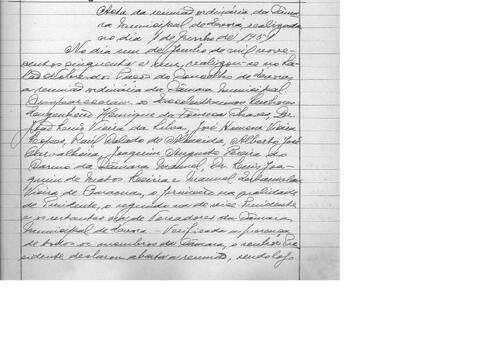 Acta da reunião ordinária da Câma-
ra Municipal de Evora, realizada
no dia 1 de Junho de 1951
No dia um de Junho de mil nove-
centos cinquenta e um, realizou-se no Sa-
lão Nobre dos Paços do Concelho de Evora,
a reunião ordinária da Câmara Municipal.
Compareceram os Excelentíssimos Senhores
Engenheiro Henrique da Fonseca Chaves, Dr.
João Luis Vieira da Silva, José Homem Vieira
Raúl de Almeida, Alberto José
Carvalheira, Joaquim Augusto do
Carmo da Câmara Manuel, Dr. Luis Joa-
quim de Matos e Manuel Sebastião
Vieira de , o primeiro na qualidade
de Presidente, o segundo na de vice-Presidente
e os restantes na de Vereadores da Câmara
Municipal de Evora. - Verificada a presença
de todos os membros da Câmara, o senhor Pre-
sidente declarou aberta a reunião, sendo logo